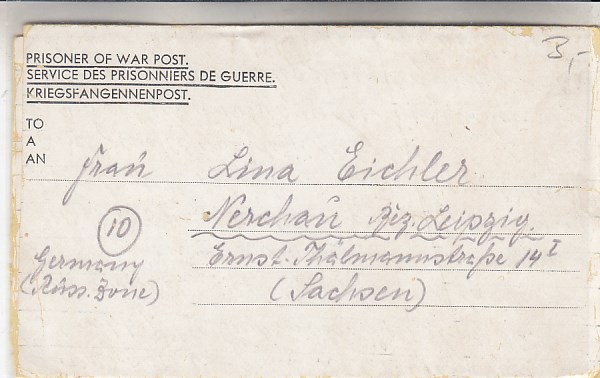 3,-
PRISONER OF WAR POST.
SERVICE DES PRISONNIERS DE GUERRE.
KRIEGSFANGENNENPOST.
TO
A
AN
Frau Lina Eichler
Nerchau Bez. Leipzig.
Ernst-Thälmannstraße 14 I
(Sachsen)
10
Germany
(Russ. Zone)